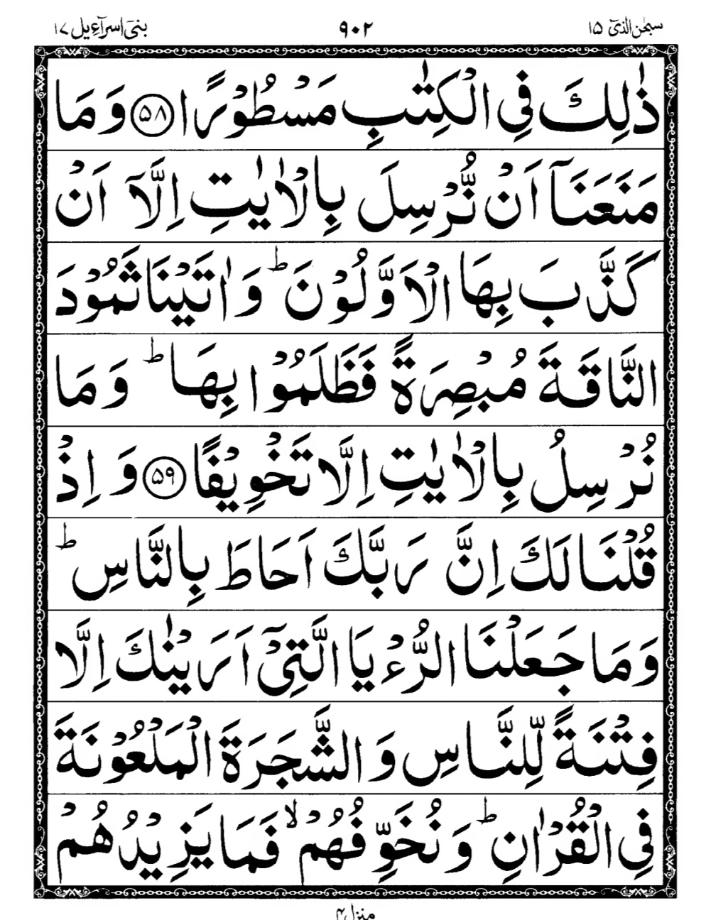 سبحن الذی ۱۵ ۹۰۲ بنی اسرآءیل ۱۷
ذٰلِكَ فِی الْكِتٰبِ مَسْطُوْرًا ﴿۵۸﴾ وَ مَا
مَنَعَنَاۤ اَنْ نُّرْسِلَ بِالْاٰیٰتِ اِلَّاۤ اَنْ
كَذَّبَ بِهَا الْاَوَّلُوْنَ ؕ وَ اٰتَیْنَا ثَمُوْدَ
النَّاقَةَ مُبْصِرَةً فَظَلَمُوْا بِهَا ؕ وَ مَا
نُرْسِلُ بِالْاٰیٰتِ اِلَّا تَخْوِیْفًا ﴿۵۹﴾ وَ اِذْ
قُلْنَا لَكَ اِنَّ رَبَّكَ اَحَاطَ بِالنَّاسِ ؕ
وَ مَا جَعَلْنَا الرُّءْیَا الَّتِیْۤ اَرَیْنٰكَ اِلَّا
فِتْنَةً لِّلنَّاسِ وَ الشَّجَرَةَ الْمَلْعُوْنَةَ
فِی الْقُرْاٰنِ ؕ وَ نُخَوِّفُهُمْ ۙ فَمَا یَزِیْدُهُمْ
منزل ۴